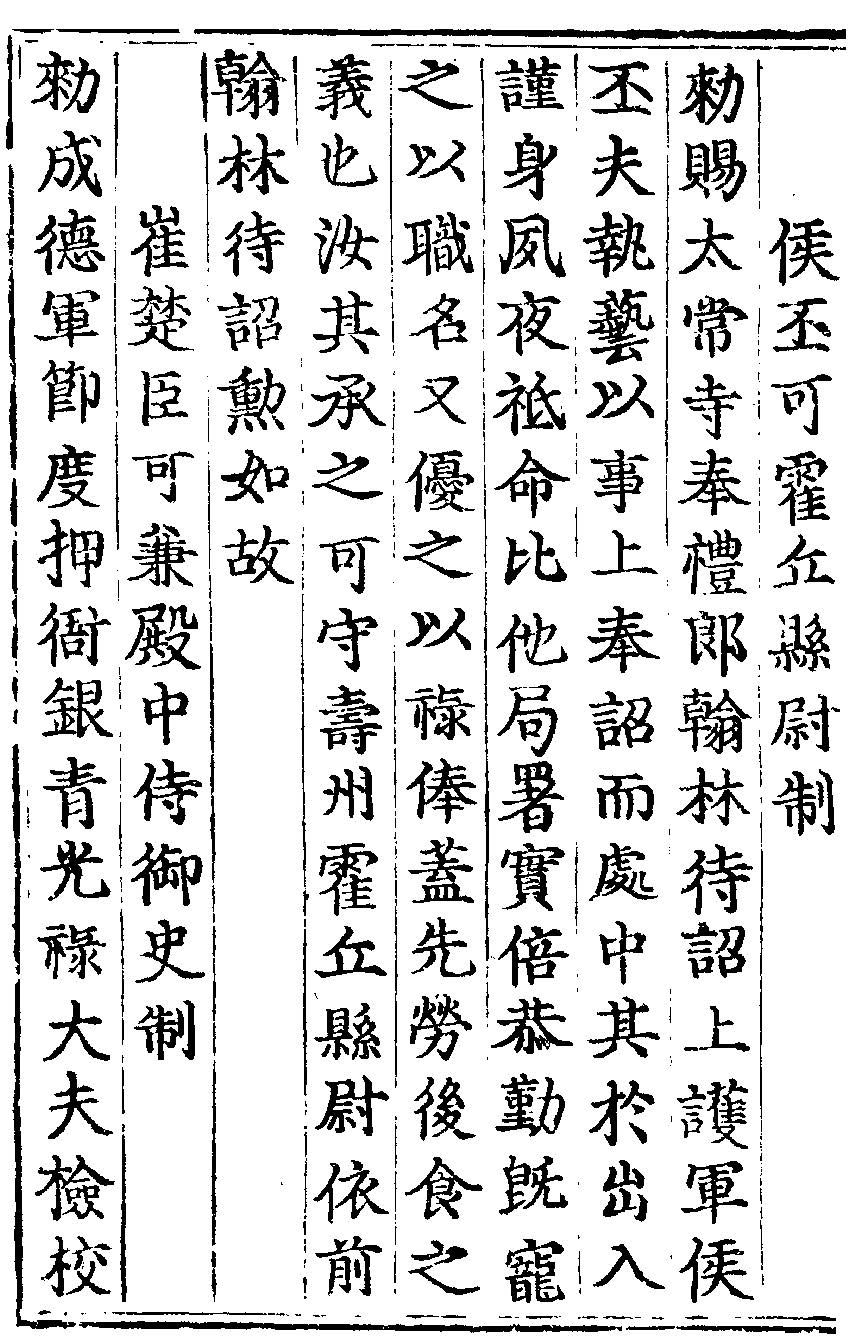 侯丕可霍丘縣尉制
勑賜太常寺奉禮郎翰林待詔上護軍侯
丕夫執藝以事上奉詔而處中其於出入
謹身夙夜祗命比他局署實倍恭勤既寵
之以職名又優之以祿俸蓋先勞後食之
義也汝其承之可守壽州霍丘縣尉依前
翰林待詔勲如故
崔楚臣可兼殿中侍御史制
勑成德軍節度押衙銀青光祿大夫檢校